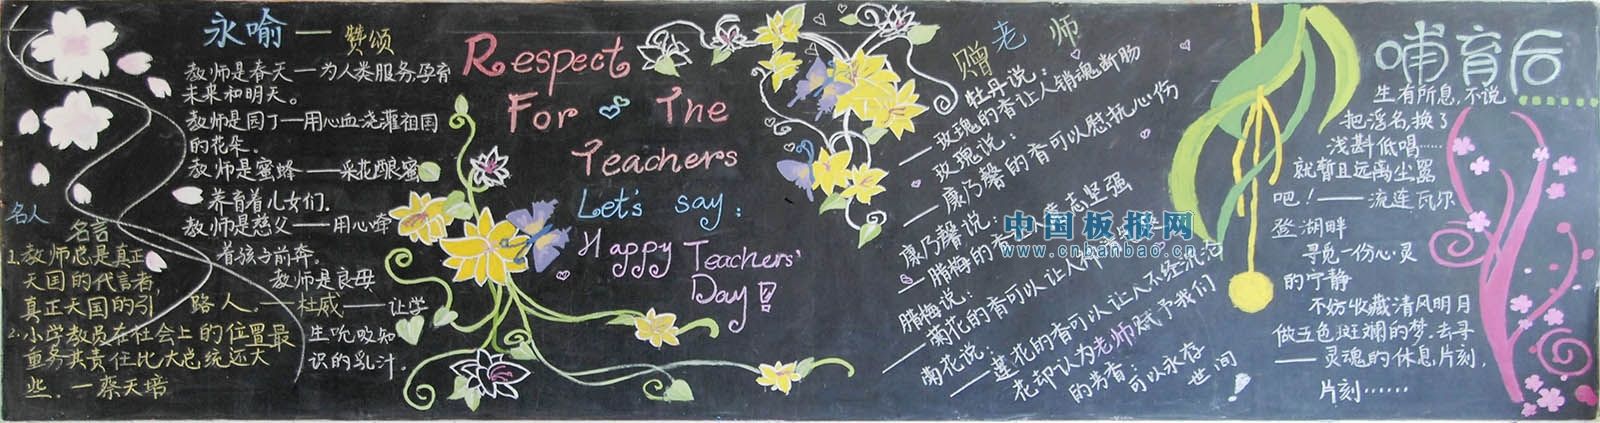 永喻—赞颂
教师是春天—为人类服务,孕育
未来和明天。
教师是园丁—用心血浇灌祖国
的花朵。
教师是蜜蜂——采花酿蜜
养育着儿女们.
教师是慈父——用心牵
着孩子前奔。
教师是良母
——让学
生吮吸知
识的乳汁.
名人
名言
1.教师总是真正
天国的代言者,
真正天国的引
路人.——杜威
2.小学教员在社会上的位置最
重务其责任比大总统还大
些.—蔡天培
Respect
For The
Teachers
Let's say:
Happy Teachers'
Day!
赠老师
牡丹说:
——玫瑰的香让人销魂断肠
玫瑰说:
——康乃馨的香可以慰抚心伤
康乃馨说:
——腊梅的香 意志坚强
腊梅说:
——菊花的香可以让人
菊花说:
——莲花的香可以让人不经沉沦
花却认为老师赋予我们
的芳香:可以永存
世间!
中国板报网
www.cnbanbao.cn
哺育后
生有所息,不说
把浮名,换了
浅斟低唱……
就暂且远离尘嚣
吧!——流连瓦尔
登湖畔
寻觅一份心灵
的宁静
不妨收藏清风明月
做五色斑斓的梦.去寻
——灵魂的休息,片刻,
片刻……